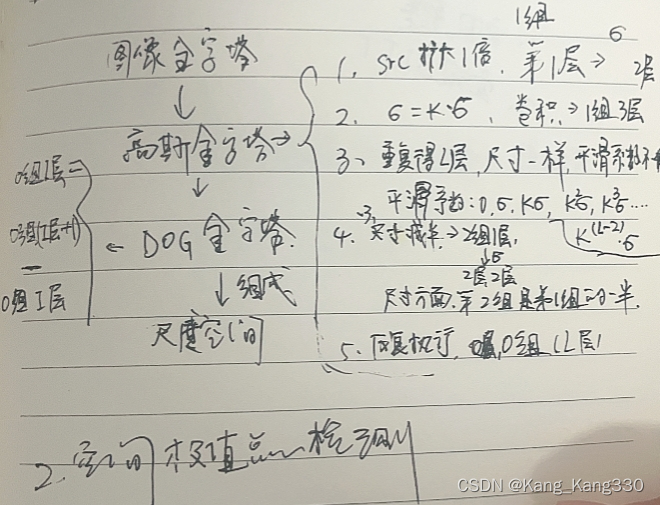 图像金字塔
↓
高斯金字塔→
↓
DOG金字塔
↓组成
尺度空间
0组I层=
0组(I+1)
—
0组I层
←
1组
1. src扩大1倍, 第1层→6 2层
2. 6=K·6, 卷积→1组3层
3. 重复得L层, 尺寸一样, 平滑系数不
平滑系数: 0, 6, K6, K²6, K³6....
K^(L-2)·6
4. -3, 尺寸减半→2组1层,
↓6
2层, 2层
尺寸方面, 第2组是第1组的一半.
5. 反复执行, 0组(L层)
2. 空间极值点检测
CSDN @Kang_Kang330